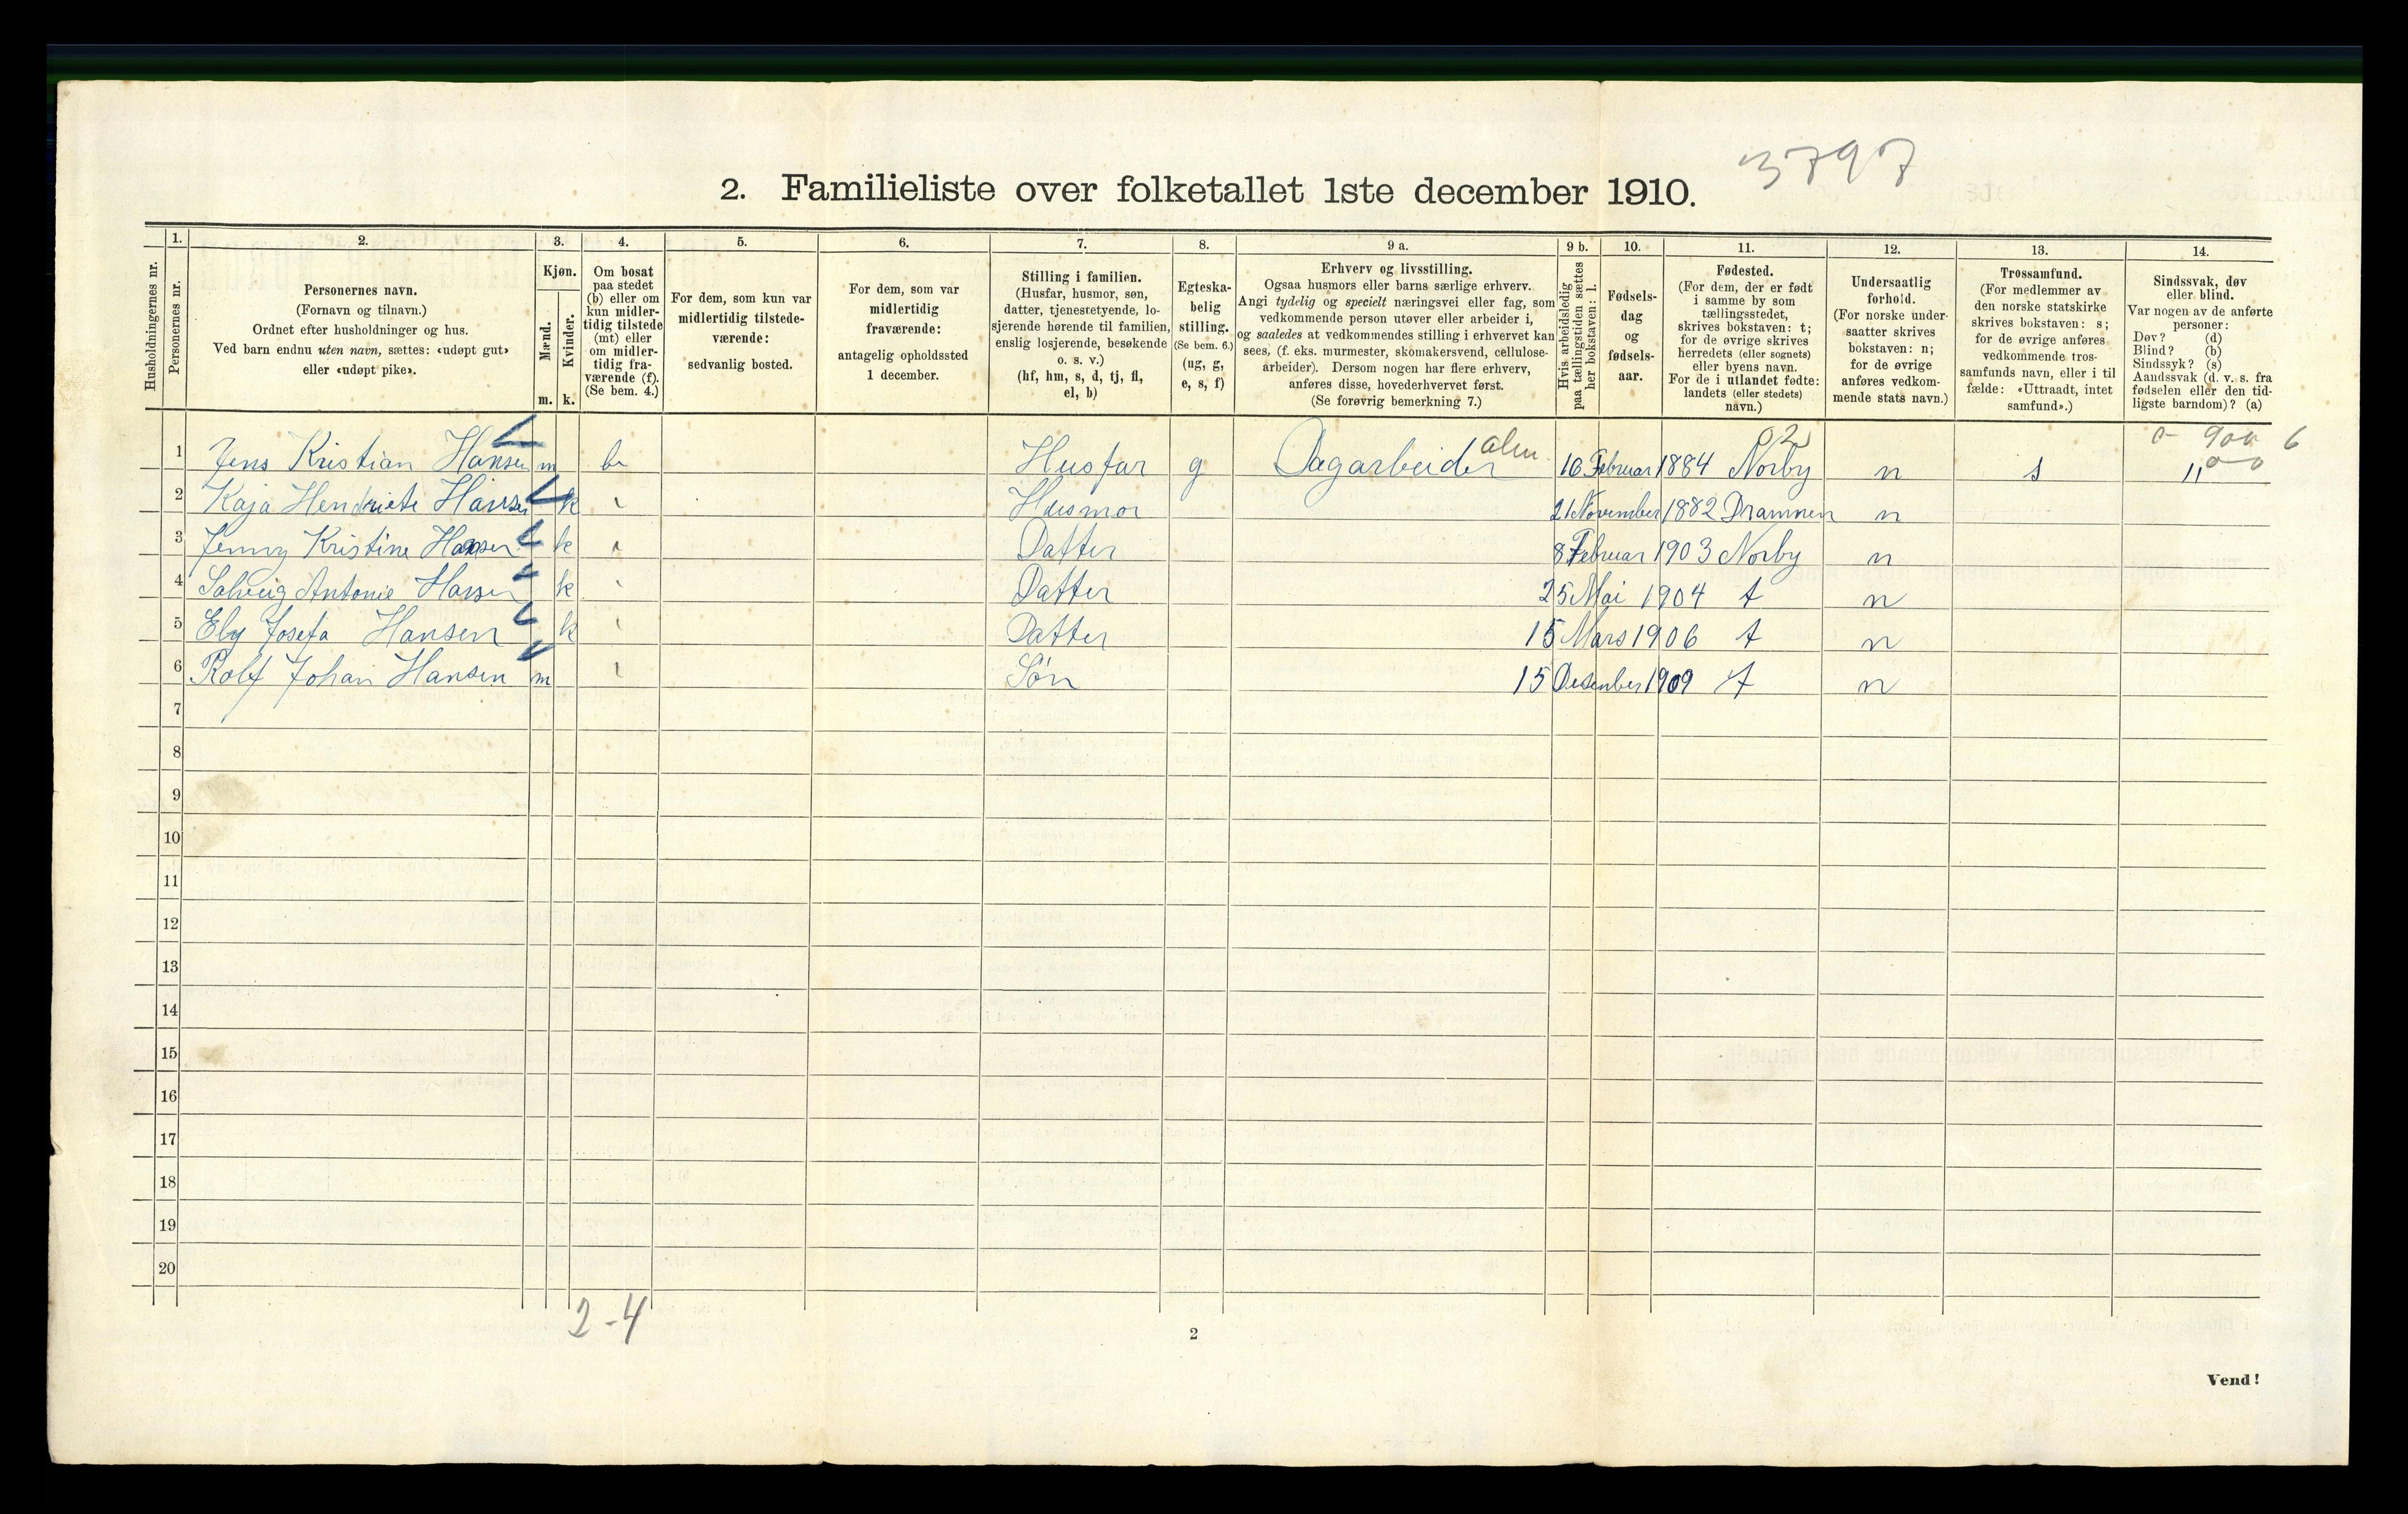 3797
2. Familieliste over folketallet 1ste december 1910.
Husholdningernes nr.
1.
Personernes nr.
2.
Personernes navn.
(Fornavn og tilnavn.)
Ordnet efter husholdninger og hus.
Ved barn endnu uten navn, sættes: «udøpt gut»
eller «udøpt pike».
3.
Kjøn.
Mænd.
Kvinder.
m. k.
4.
Om bosat
paa stedet
(b) eller om
kun midler-
tidig tilstede
(mt) eller
om midler-
tidig fra-
værende (f).
(Se bem. 4.)
5.
For dem, som kun var
midlertidig tilstede-
værende:
sedvanlig bosted.
6.
For dem, som var
midlertidig
fraværende:
antagelig opholdssted
1 december.
7.
Stilling i familien.
(Husfar, husmor, søn,
datter, tjenestetyende, lo-
sjerende hørende til familien,
enslig losjerende, besøkende
o. s. v.)
(hf, hm, s, d, tj, fl,
el, b)
8.
Egteska-
belig
stilling.
(Se bem. 6.)
(ug, g,
e, s, f)
9 a.
Erhverv og livsstilling.
Ogsaa husmors eller barns særlige erhverv.
Angi tydelig og specielt næringsvei eller fag, som
vedkommende person utøver eller arbeider i,
og saaledes at vedkommendes stilling i erhvervet kan
sees, (f. eks. murmester, skomakersvend, cellulose-
arbeider). Dersom nogen har flere erhverv,
anføres disse, hovederhvervet først.
(Se forøvrig bemerkning 7.)
9 b.
Hvis arbeidsledig
paa tællingstiden sættes
her bokstaven: l.
10.
Fødsels-
dag
og
fødsels-
aar.
11.
Fødested.
(For dem, der er født
i samme by som
tællingsstedet,
skrives bokstaven: t;
for de øvrige skrives
herredets (eller sognets)
eller byens navn.
For de i utlandet fødte:
landets (eller stedets)
navn.)
12.
Undersaatlig
forhold.
(For norske under-
saatter skrives
bokstaven: n;
for de øvrige
anføres vedkom-
mende stats navn.)
13.
Trossamfund.
(For medlemmer av
den norske statskirke
skrives bokstaven: s;
for de øvrige anføres
vedkommende tros-
samfunds navn, eller i til
fælde: «Uttraadt, intet
samfund».)
14.
Sindssvak, døv
eller blind.
Var nogen av de anførte
personer:
Døv? (d)
Blind? (b)
Sindssyk? (s)
Aandssvak (d. v. s. fra
fødselen eller den tid-
ligste barndom)? (a)
1 Jens Kristian Hansen m b Husfar g Dagarbeider alm. 16 Februar 1884 02 Norby n s
2 Kaja Hendriete Hansen k Husmor 21 November 1882 Drammen n
3 Jenny Kristine Hansen k Datter 8 Februar 1903 Norby n
4 Solveig Antonie Hansen k Datter 25 Mai 1904 t n
5 Ely Josefa Hansen k Datter 15 Mars 1906 t n
6 Rolf Johan Hansen m Søn 15 Desember 1909 t n
7
8
9
10
11
12
13
14
15
16
17
18
19
20
2-4
2
Vend!